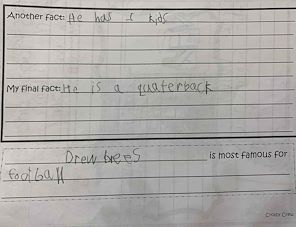 Another fact: He has kids
My final fact: He is a quaterback
Drew brees is most famous for
football